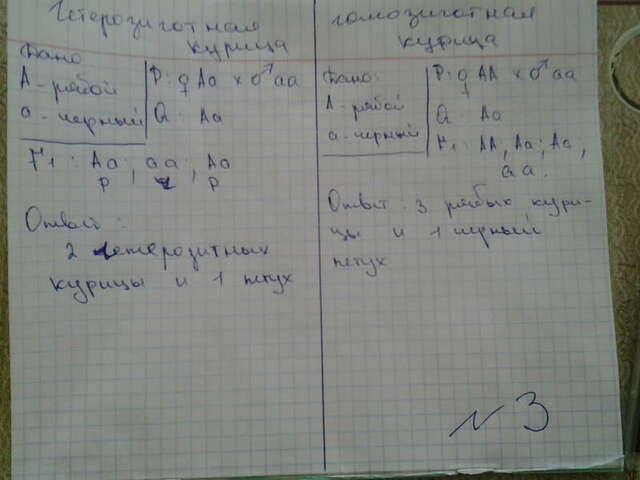 Гетерозиготная
курица
Дано
А - рябой
а - черный
Р: ♀ Аа х ♂ аа
G: Аа
F1: Аа; аа; Аа
р ч р
Ответ:
2 гетерозитных
курицы и 1 петух
гомозиготная
курица
Дано:
А - рябой
а - черный
Р: ♀ АА х ♂ аа
G: Аа
F1: АА, Аа; Аа;
аа.
Ответ: 3 рябых кури-
цы и 1 черный
петух
№3